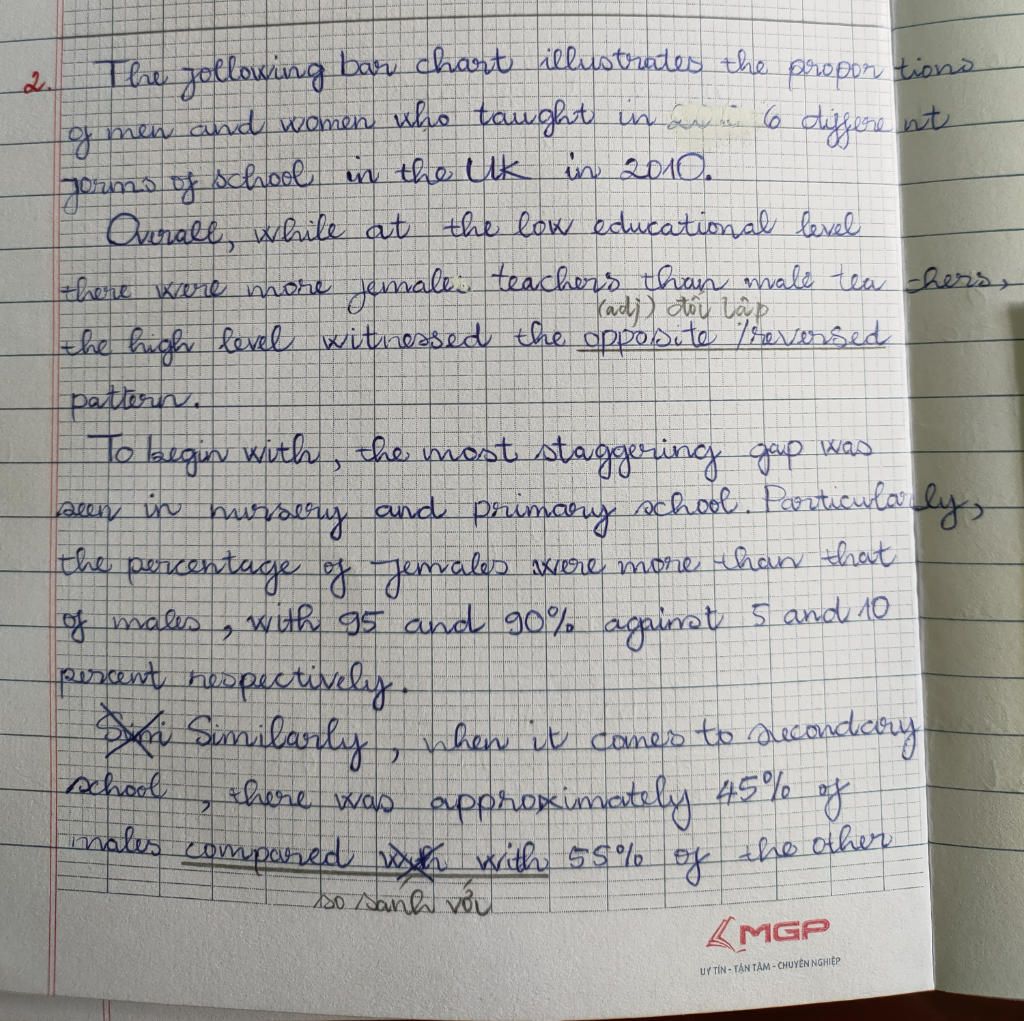 2. The following bar chart illustrates the proportions
of men and women who taught in 6 different
forms of school in the UK in 2010.
Overall, while at the low educational level
there were more female teachers than male teachers,
(adj) đối lập
the high level witnessed the opposite / reversed
pattern.
To begin with, the most staggering gap was
seen in nursery and primary school. Particularly,
the percentage of females were more than that
of males, with 95 and 90% against 5 and 10
percent respectively.
Similarly, when it comes to secondary
school, there was approximately 45% of
males compared with 55% of the other
so sánh với
MGP
UY TÍN - TẬN TÂM - CHUYÊN NGHIỆP